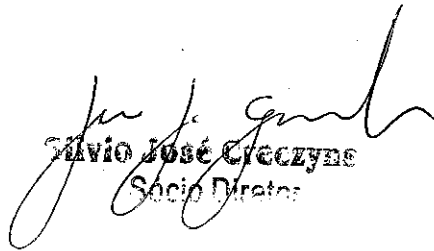 Silvio José Creczyns
Sócio Diretor